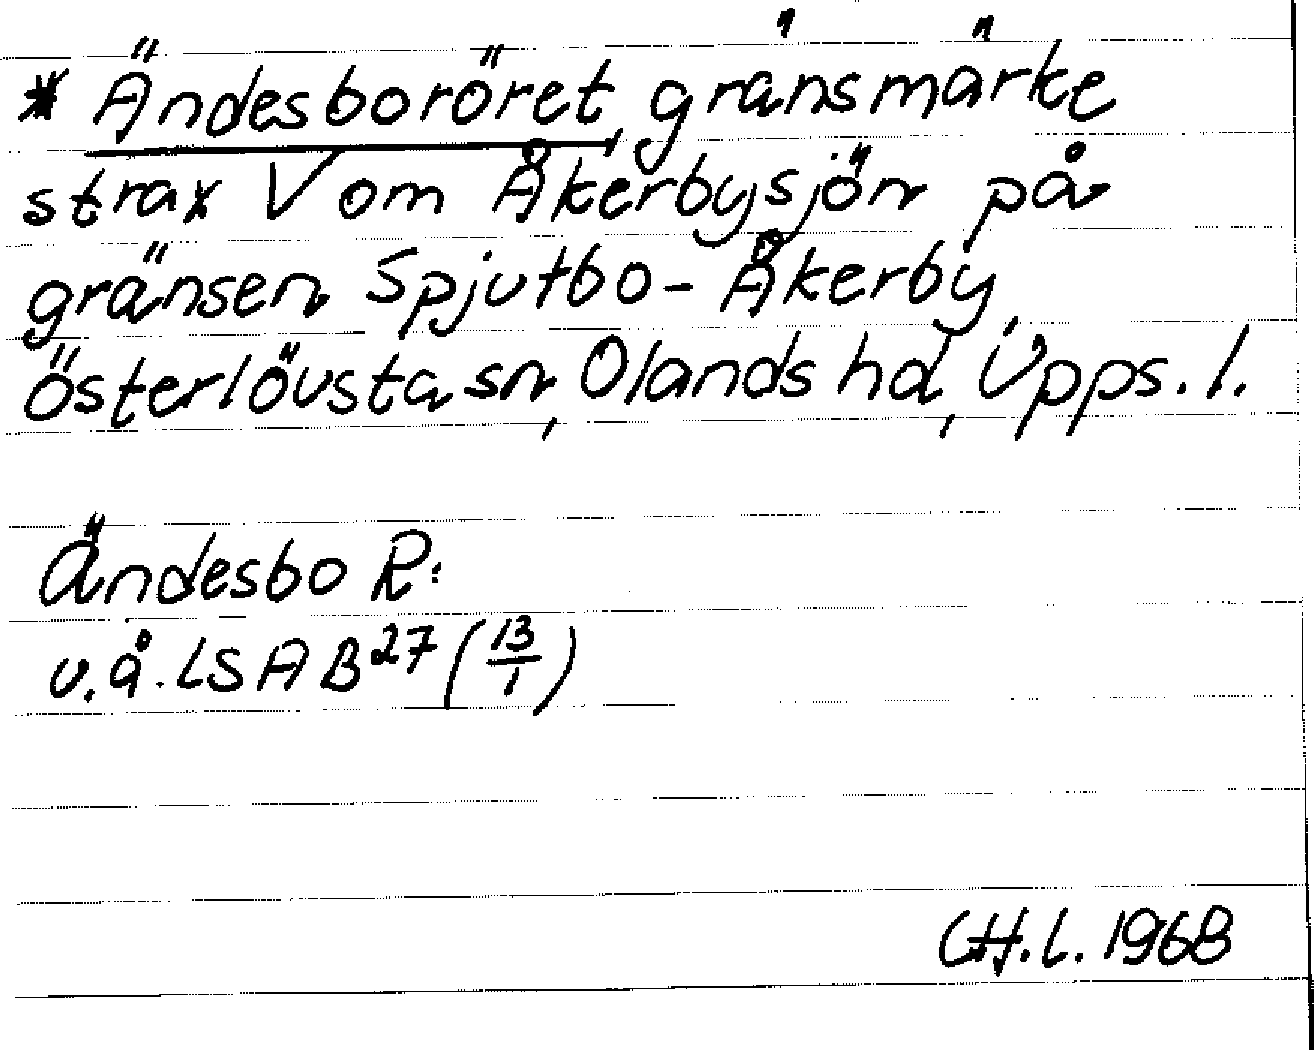 * Ändesboröret, gränsmärke
strax V om Åkerbysjön på
gränsen Spjutbo-Åkerby,
Österlövsta sn, Olands hd, Upps. l.
Ändesbo R:
u.å. LSA B27 (13/1)
CH.L. 1968